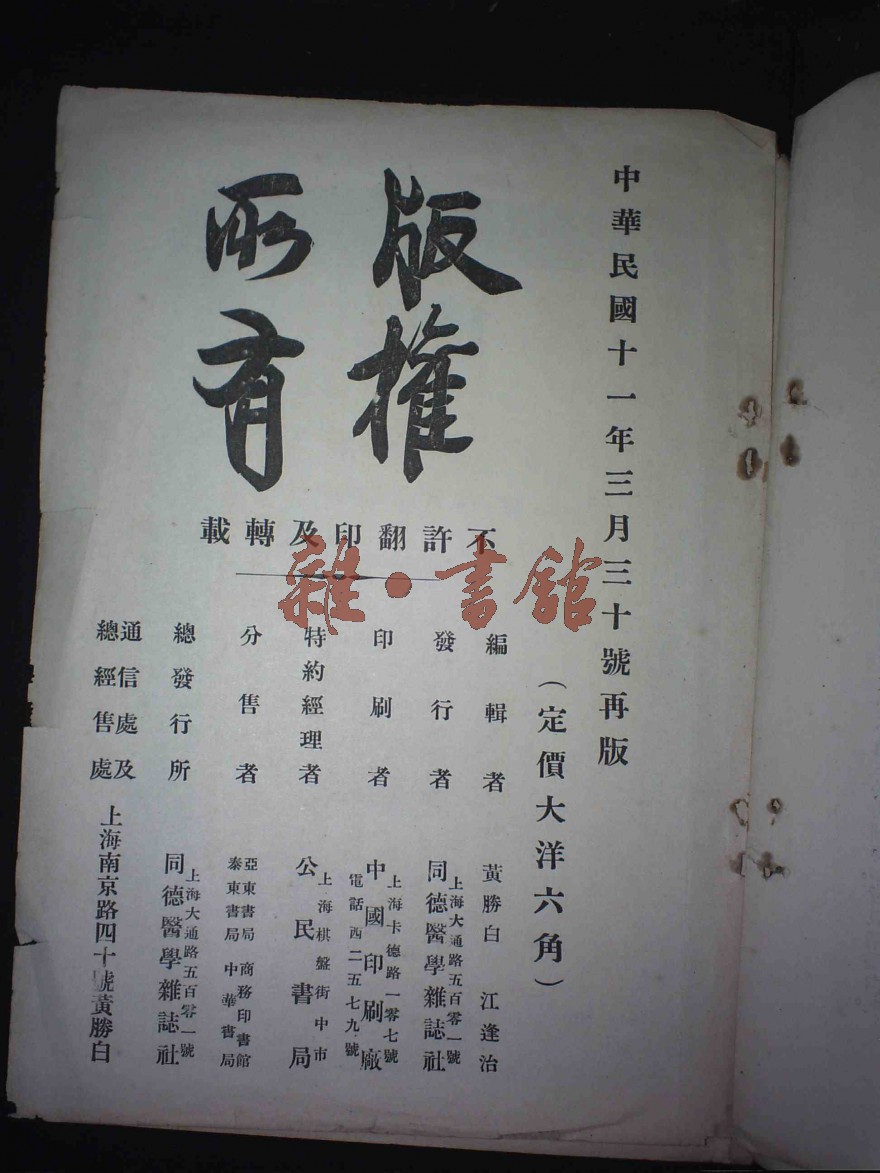 中華民國十一年三月三十號再版
（定價大洋六角）
版權
所有
不許翻印及轉載
編輯者 黃勝白 江逢治
發行者 上海大通路五百零一號
同德醫學雜誌社
印刷者 上海卡德路一零七號
中國印刷廠
電話西二五七九號
特約經理者 上海棋盤街中市
公民書局
分售者 亞東書局 商務印書館
泰東書局 中華書局
總發行所 上海大通路五百零一號
同德醫學雜誌社
通信處及
總經售處 上海南京路四十號黃勝白
雜·書館